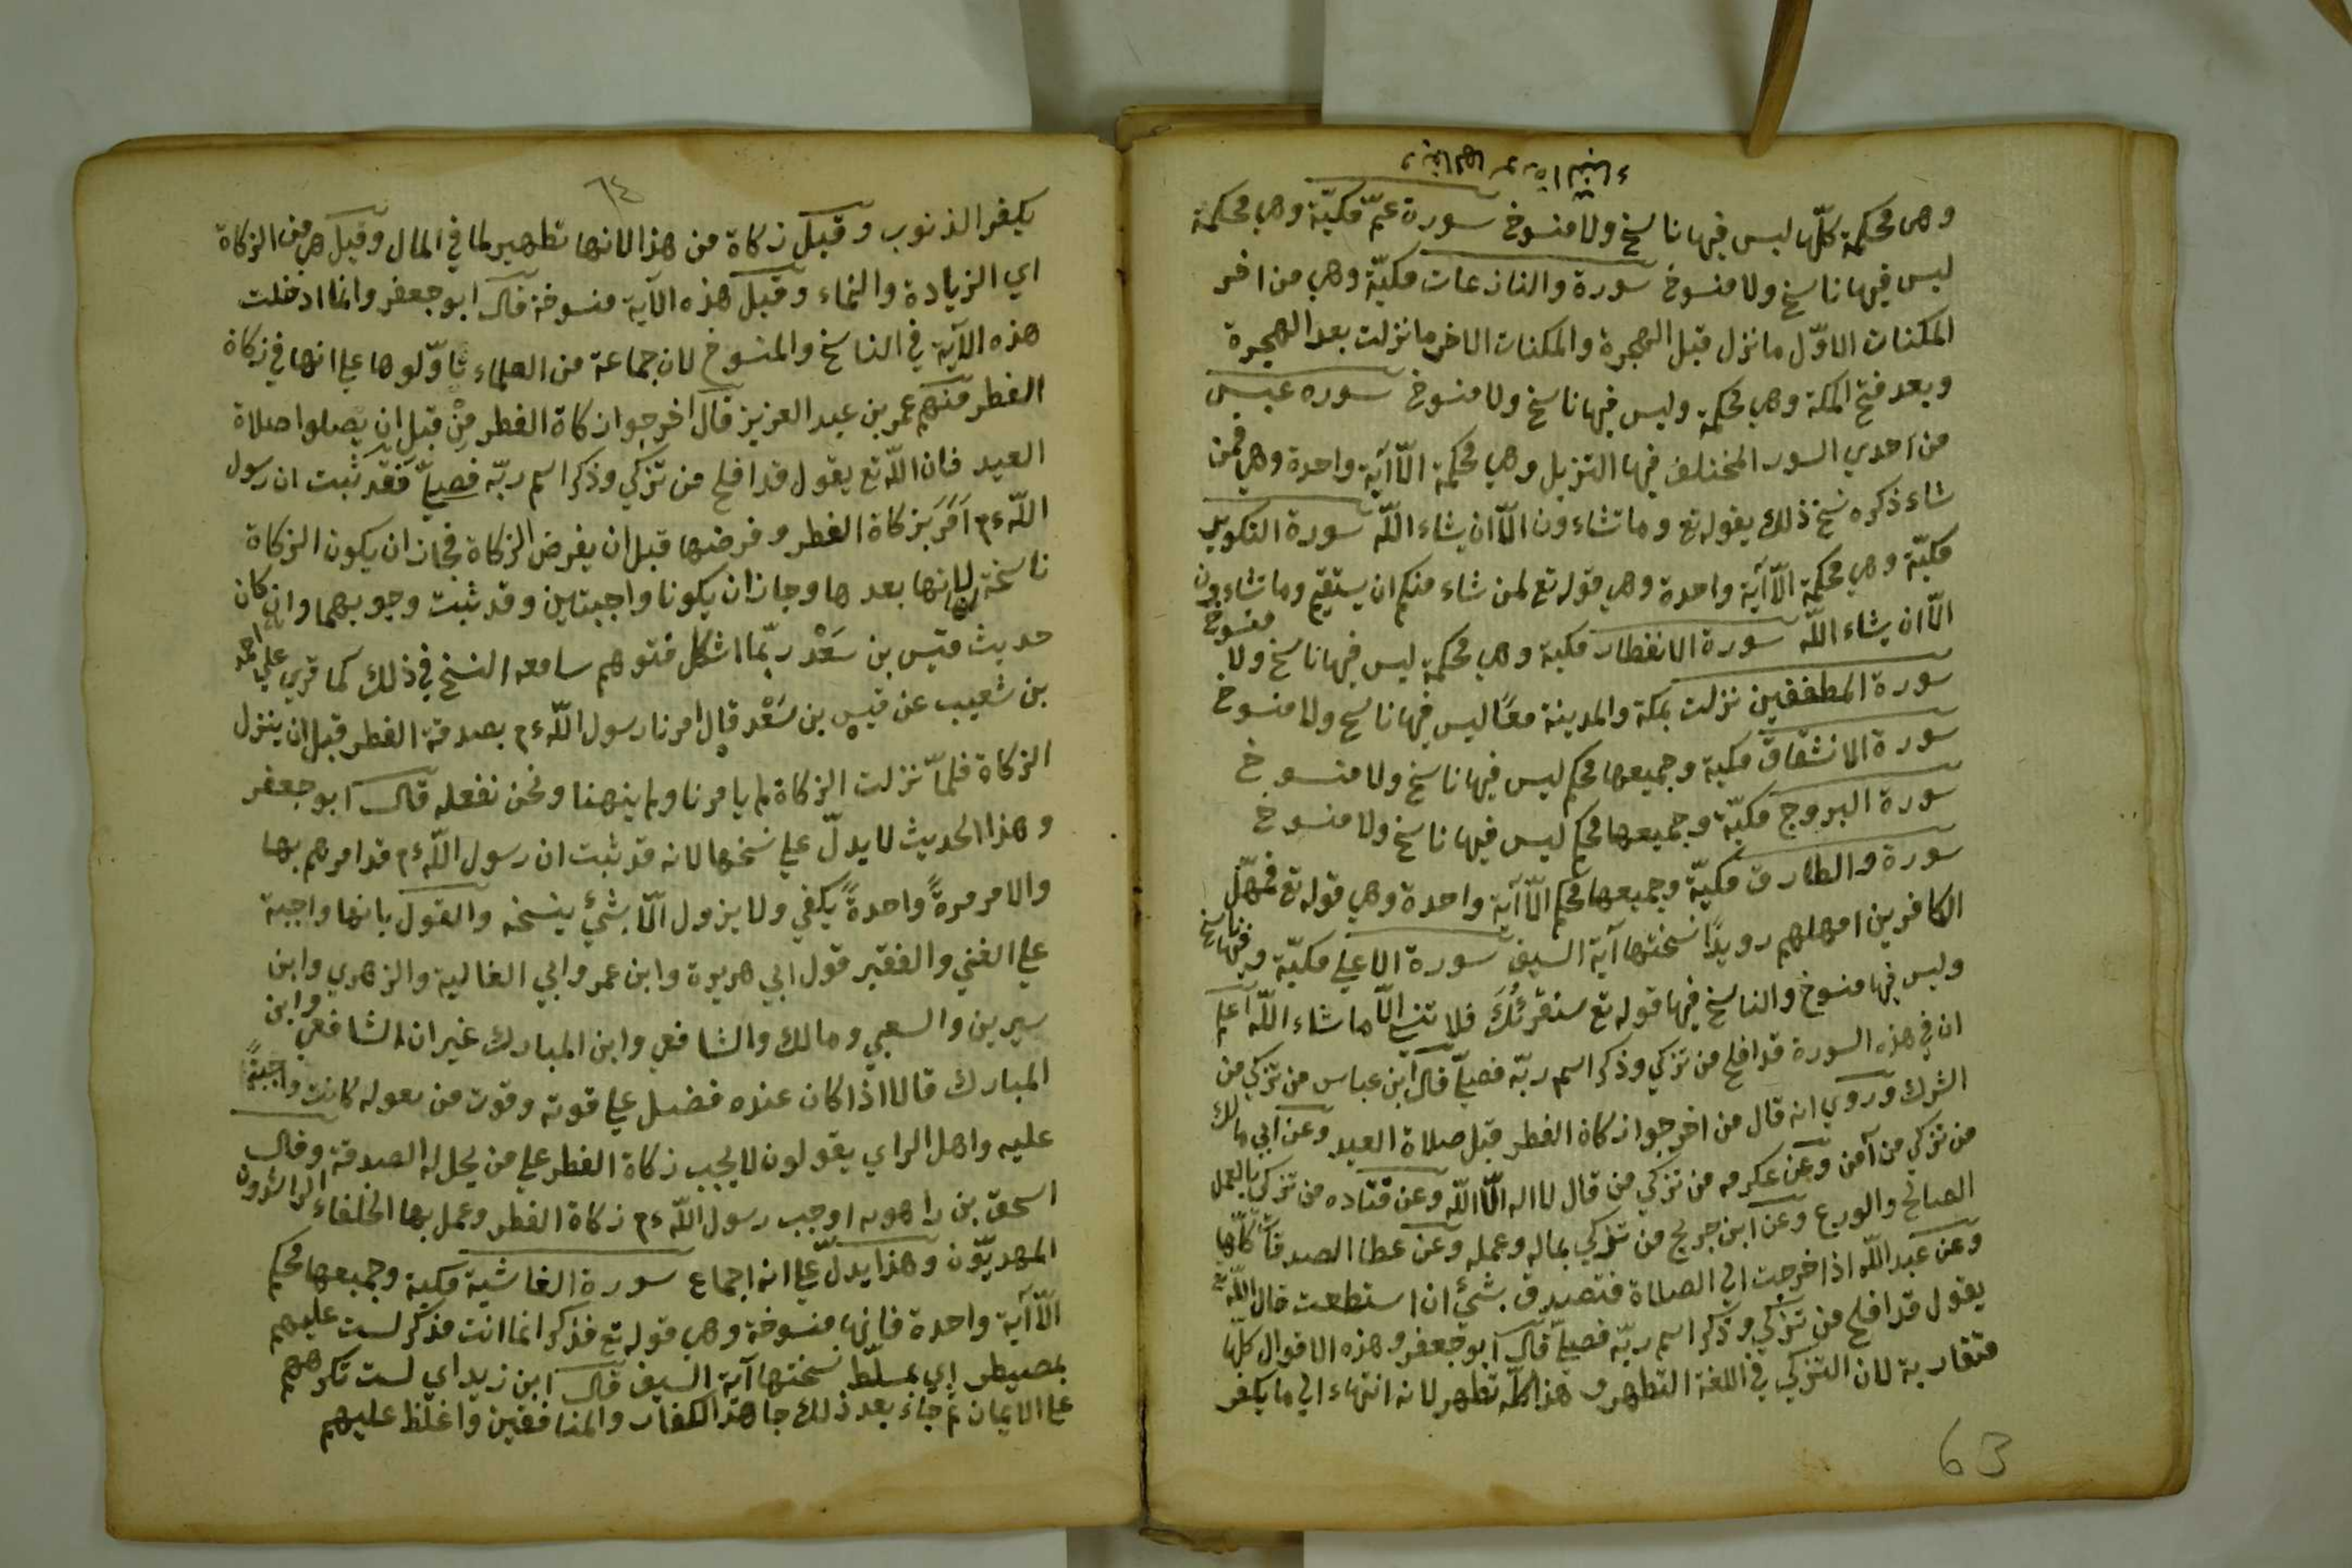 وهى محكمة كلّها ليس فيها ناسخ ولا منسوخ سورة عمّ مكيّة وهى محكمة
ليس فيها ناسخ ولا منسوخ سورة والنازعات مكيّة وهي من اخر
المكنات الاوّل ما نزل قبل الهجرة والمكنات الاخر ما نزلت بعد الهجرة
وبعد فتح المكة وهي محكمة وليس فيها ناسخ ولا منسوخ سوره عبس
من احدي السور المختلف فيها التنزيل وهي محكمة الّا آية واحدة وهي فمن
شاء ذكره نسخ ذلك بقوله تع وما تشاءون الّا ان يشاء اللّه سورة التكوير
مكيّة وهي محكمة الّا آية واحدة وهي قوله تع لمن شاء منكم ان يستقيم وما تشاءون
الّا ان يشاء اللّه سورة الانفطار مكية وهي محكمة ليس فيها ناسخ ولا منسوخ
سورة المطففين نزلت بمكة والمدينة معًا ليس فيها ناسخ ولا منسوخ
سورة الانشقاق مكية وجميعها محكم ليس فيها ناسخ ولا منسوخ
سورة البروج مكيّة وجميعها محكم ليس فيها ناسخ ولا منسوخ
سورة والطارق مكيّة وجميعها محكم الّا آية واحدة وهي قوله تع فمهّل
الكافرين امهلهم رويدًا نسختها آية السيف سورة الاعلي مكيّة وفيها ناسخ
وليس فيها منسوخ والناسخ فيها قوله تع سنقرئُكَ فلا تنسي الّا ما شاء اللّه اعلم
ان في هذه السورة قد افلح من تزكي وذكر اسم ربّه فصلّي قال ابن عباس من تزكي من
الشرك وروي انه قال من اخرجوا زكاة الفطر قبل صلاة العيد وعن ابي مالك
من تزكي من آمن وعن عكرمه من تزكي من قال لا اله الّا اللّه وعن قتاده من تزكي بالعمل
الصالح والورع وعن ابن جريج من تزكي بماله وعمله وعن عطا الصدقات كلّها
وعن عبد اللّه اذا خرجت الي الصلاة فتصدق بشئ ان استطعت فان اللّه تع
يقول قد افلح من تزكي وذكر اسم ربّه فصلّي قال ابو جعفر وهذه الاقوال كلّها
متقاربة لان التزكي في اللغة التطهر وهذا كلّه تطهر لانه انتهاء الي ما يكفر
63
٦٤
يكفر الذنوب وقيل زكاة من هذا لانها تطهير لما في المال وقيل هي من الزكاة
اي الزيادة والنماء وقيل هذه الآية منسوخة قال ابو جعفر وانما ادخلت
هذه الآية في الناسخ والمنسوخ لان جماعة من العلماء تاوّلوها علي انها في زكاة
الفطر منهم عمر بن عبد العزيز قال اخرجوا زكاة الفطر مِنْ قبل ان يصلوا صلاة
العيد فان اللّه تع يقول قد افلح من تزكي وذكر اسم ربّه فصلّي فقد ثبت ان رسول
اللّه ءم اَمَرَ بزكاة الفطر وفرضها قبل ان يفرض الزكاة فجاز ان يكون الزكاة
ناسخة لها لانها بعدها وجاز ان يكونا واجبتين وقد ثبت وجوبهما وان كان
حديث قيس بن سَعْد ربّما اشكل فتوهم سامعه النسخ في ذلك كما قري علي احمد
بن شعيب عن قيس بن سَعْد قال امرنا رسول اللّه ءم بصدقة الفطر قبل ان ينزل
الزكاة فلمّا نزلت الزكاة لم يامرنا ولم ينهنا ونحن نفعله قال ابو جعفر
وهذا الحديث لا يدلّ علي نسخها لانه قد ثبت ان رسول اللّه ءم قد امرهم بها
والامر مرةً واحدةً يكفي ولا يزول الّا بشئ ينسخه والقول بانها واجبة
علي الغني والفقير قول ابي هريرة وابن عمر وابي الغالية والزهري وابن
سيرين والسعبي ومالك والشافعي وابن المبارك غير ان الشافعي وابن
المبارك قالا اذا كان عنده فضل علي قوته وقوت من يعوله كانت واجبةً
عليه واهل الراي يقولون لا يجب زكاة الفطر علي من يحل له الصدقة وقال
اسحق بن راهويه اوجب رسول اللّه ءم زكاة الفطر وعمل بها الخلفاء الراشدون
المهديّون وهذا يدلّ علي انه اجماع سورة الغاشية مكية وجميعها محكم
الّا آية واحدة فانها منسوخة وهي قوله تع فذكر انما انت مذكر لست عليهم
بمصيطر اي بمسلّط نسختها آية السيف قال ابن زيد اي لست تكرههم
علي الايمان ثم جاء بعد ذلك جاهد الكفار والمنافقين واغلظ عليهم